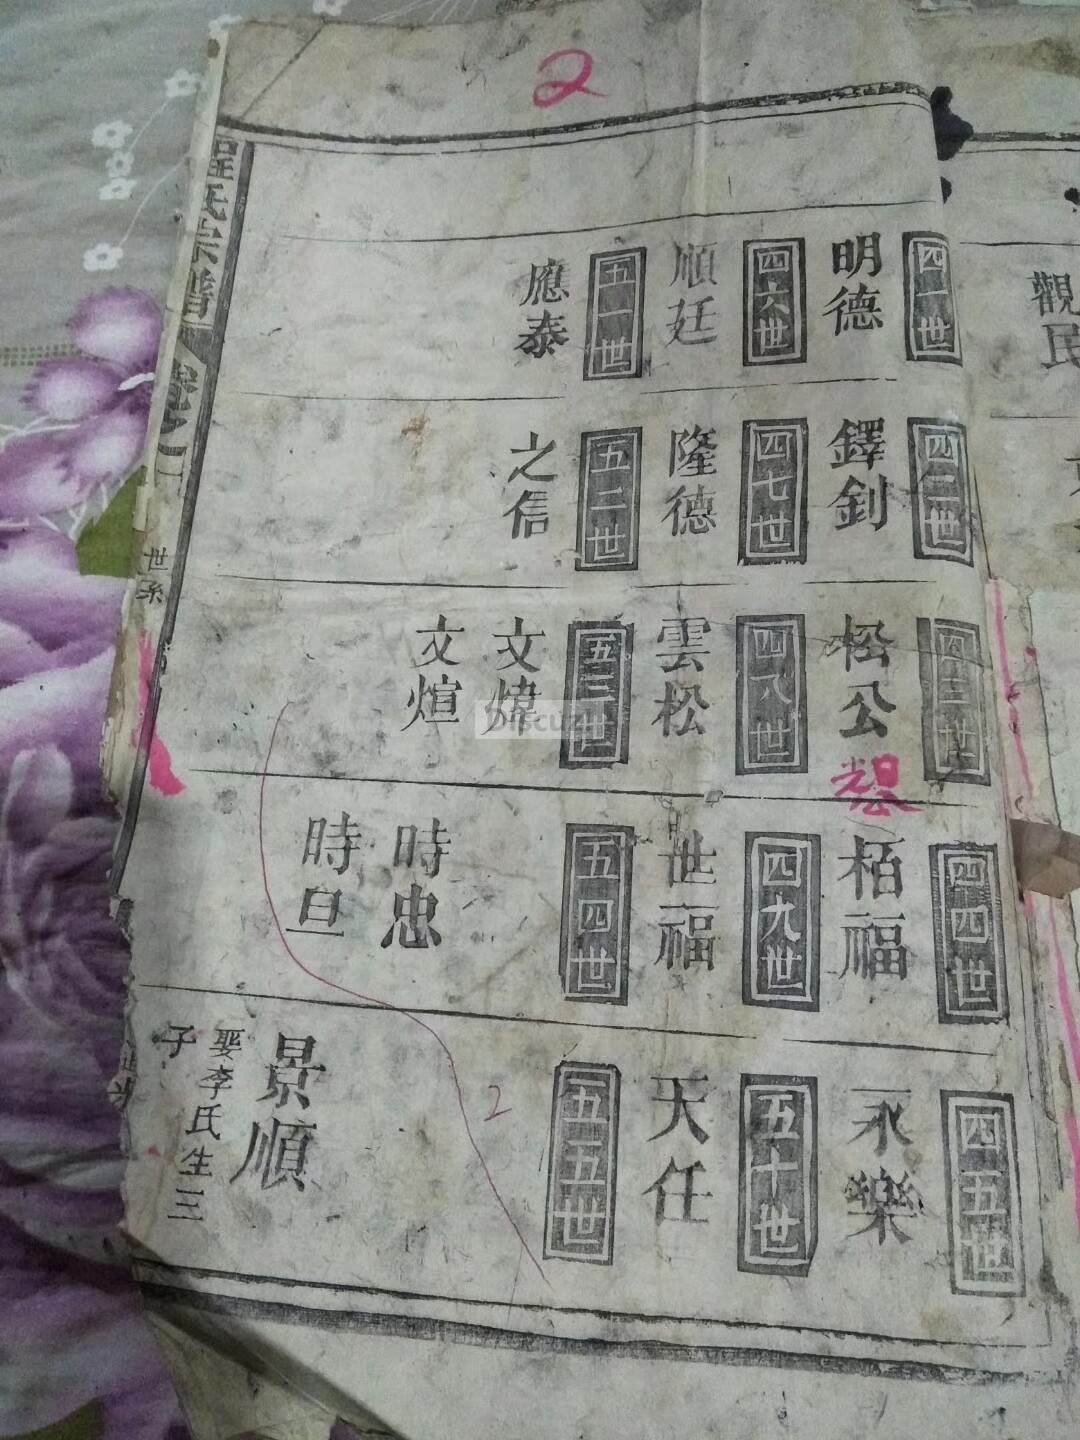 2
四一世
明德
四二世
鐸釗
四三世
松公
四四世
栢福
四五世
永樂
四六世
順廷
四七世
隆德
四八世
雲松
四九世
世福
五十世
天任
五一世
應泰
五二世
之信
五三世
文煒
文煊
五四世
時忠
時旦
五五世
2
景順
娶李氏生三
子
程氏宗譜
卷之一
世系
觀民
Discuz!